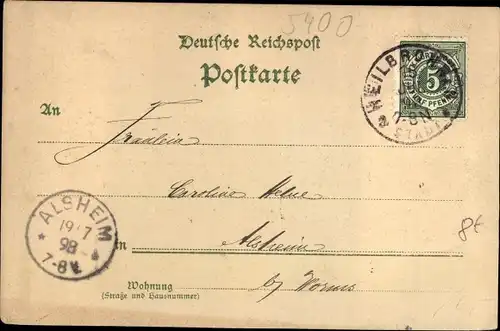 5400
Deutsche Reichspost
Postkarte
HEILBRONN
5
PFENNIG
7-8N.
STADT
An
Fräulein
Caroline
ALSHEIM
19/7
98
7-8V.
in
Alsheim
Wohnung
(Straße und Hausnummer)
b/ Worms
8€